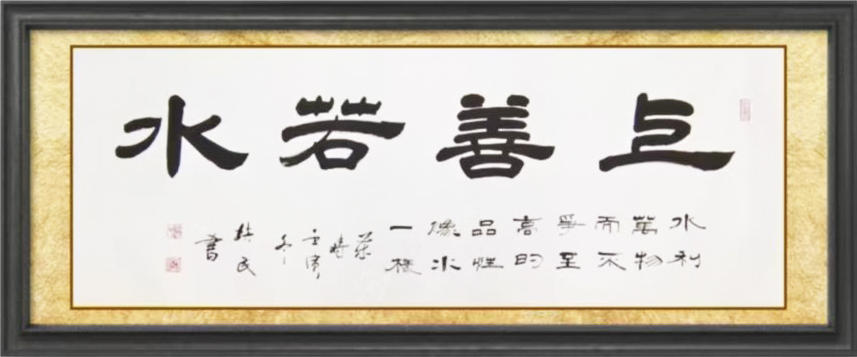 上善若水
水利
萬物
而不
爭至
高的
品性
像水
一樣
壬寅
冬
書